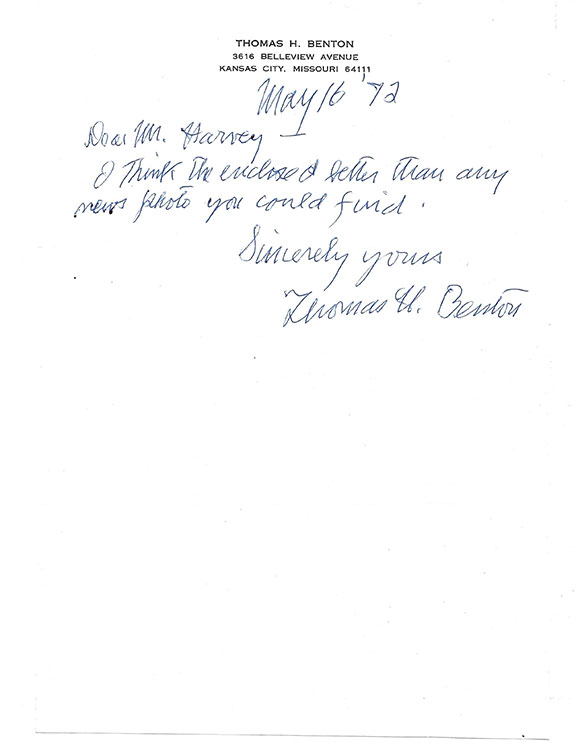 THOMAS H. BENTON
3616 BELLEVIEW AVENUE
KANSAS CITY, MISSOURI 64111
May 16 '72
Dear Mr. Harvey —
I think the enclosed better than any
news photo you could find.
Sincerely yours
Thomas H. Benton